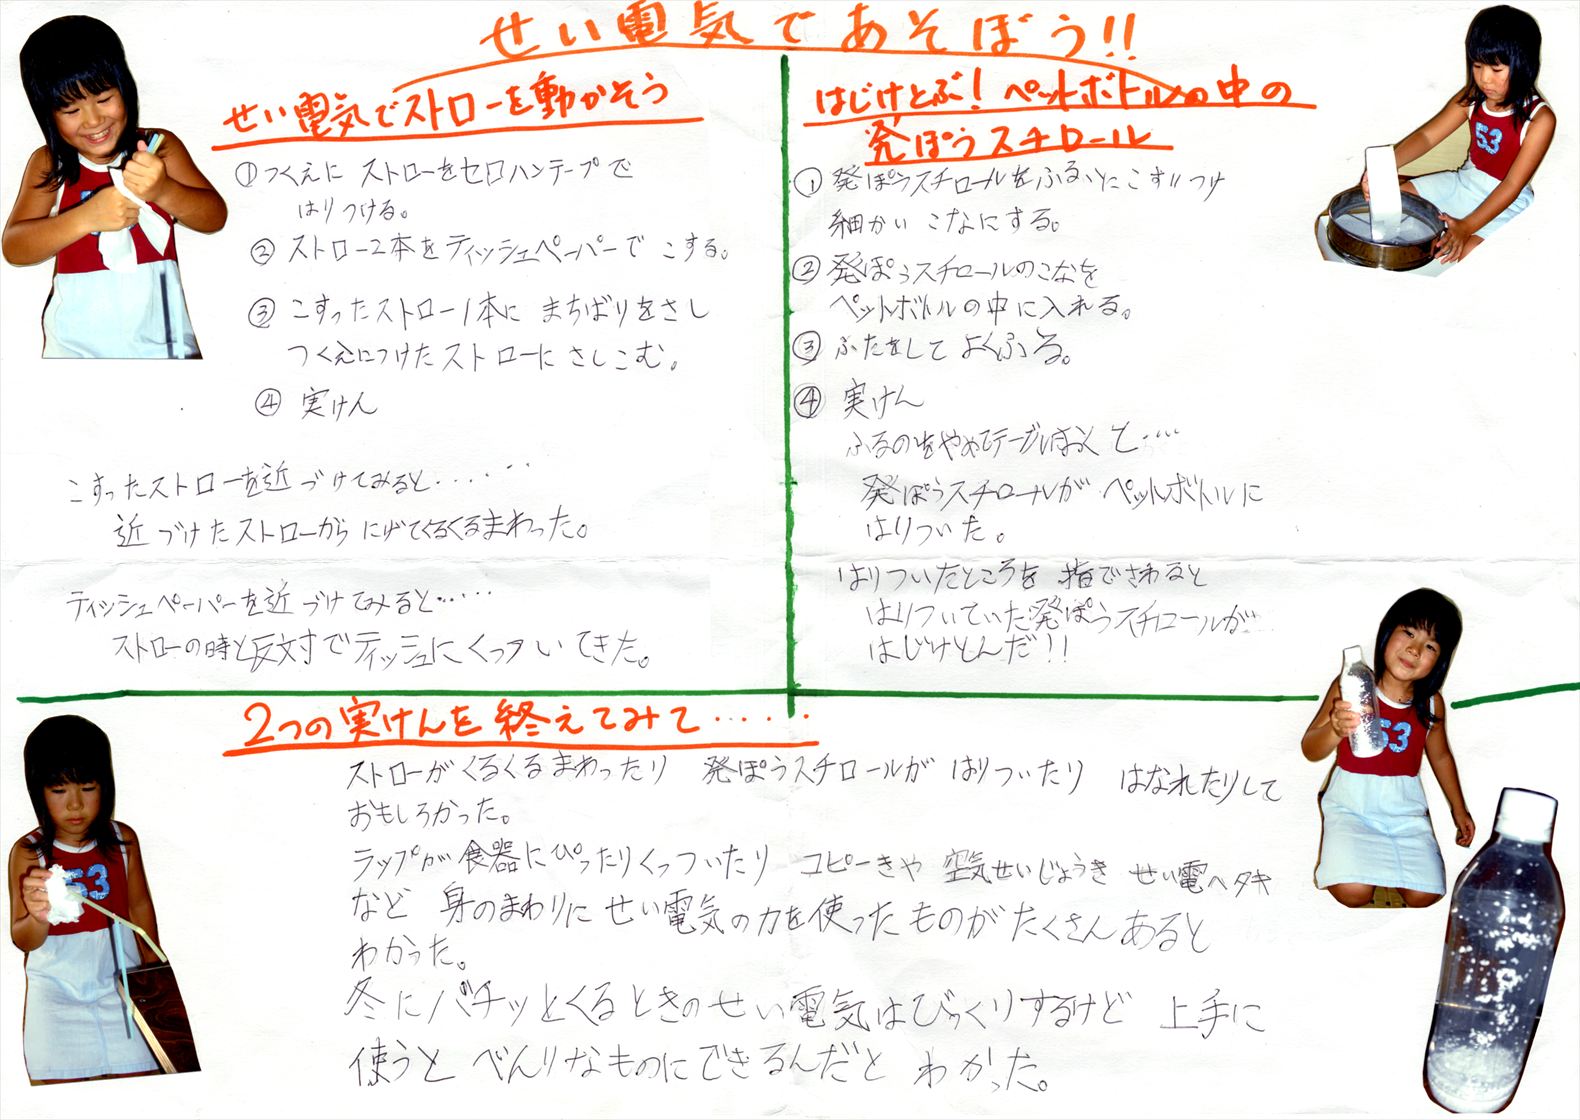 せい電気であそぼう!!
せい電気でストローを動かそう
①つくえに ストローをセロハンテープで
はりつける。
②ストロー2本をティッシュペーパーで こする。
③こすったストロー1本に まちばりをさし
つくえにつけたストローに さしこむ。
④実けん
こすったストローを近づけてみると‥‥‥
近づけたストローから にげてくるくるまわった。
ティッシュペーパーを近づけてみると‥‥‥
ストローの時と反対でティッシュにくっついてきた。
はじけとぶ! ペットボトルの中の
発ぽうスチロール
①発ぽうスチロールをふるいにこすりつけ
細かい こなにする。
②発ぽうスチロールのこなを
ペットボトルの中に入れる。
③ふたをして よくふる。
④実けん
ふるのをやめてテーブルにおくと‥‥
発ぽうスチロールが ペットボトルに
はりついた。
はりついたところを 指でさわると
はりついていた発ぽうスチロールが
はじけとんだ!!
2つの実けんを終えてみて‥‥‥
ストローがくるくるまわったり 発ぽうスチロールが はりついたり はなれたりして
おもしろかった。
ラップが食器にぴったりくっついたり コピーきや 空気せいじょうき せい電ヘタキ
など 身のまわりに せい電気の力を使ったものがたくさんあると
わかった。
冬にバチッとくるときのせい電気はびっくりするけど 上手に
使うと べんりなものにできるんだと わかった。
53
53
53
53